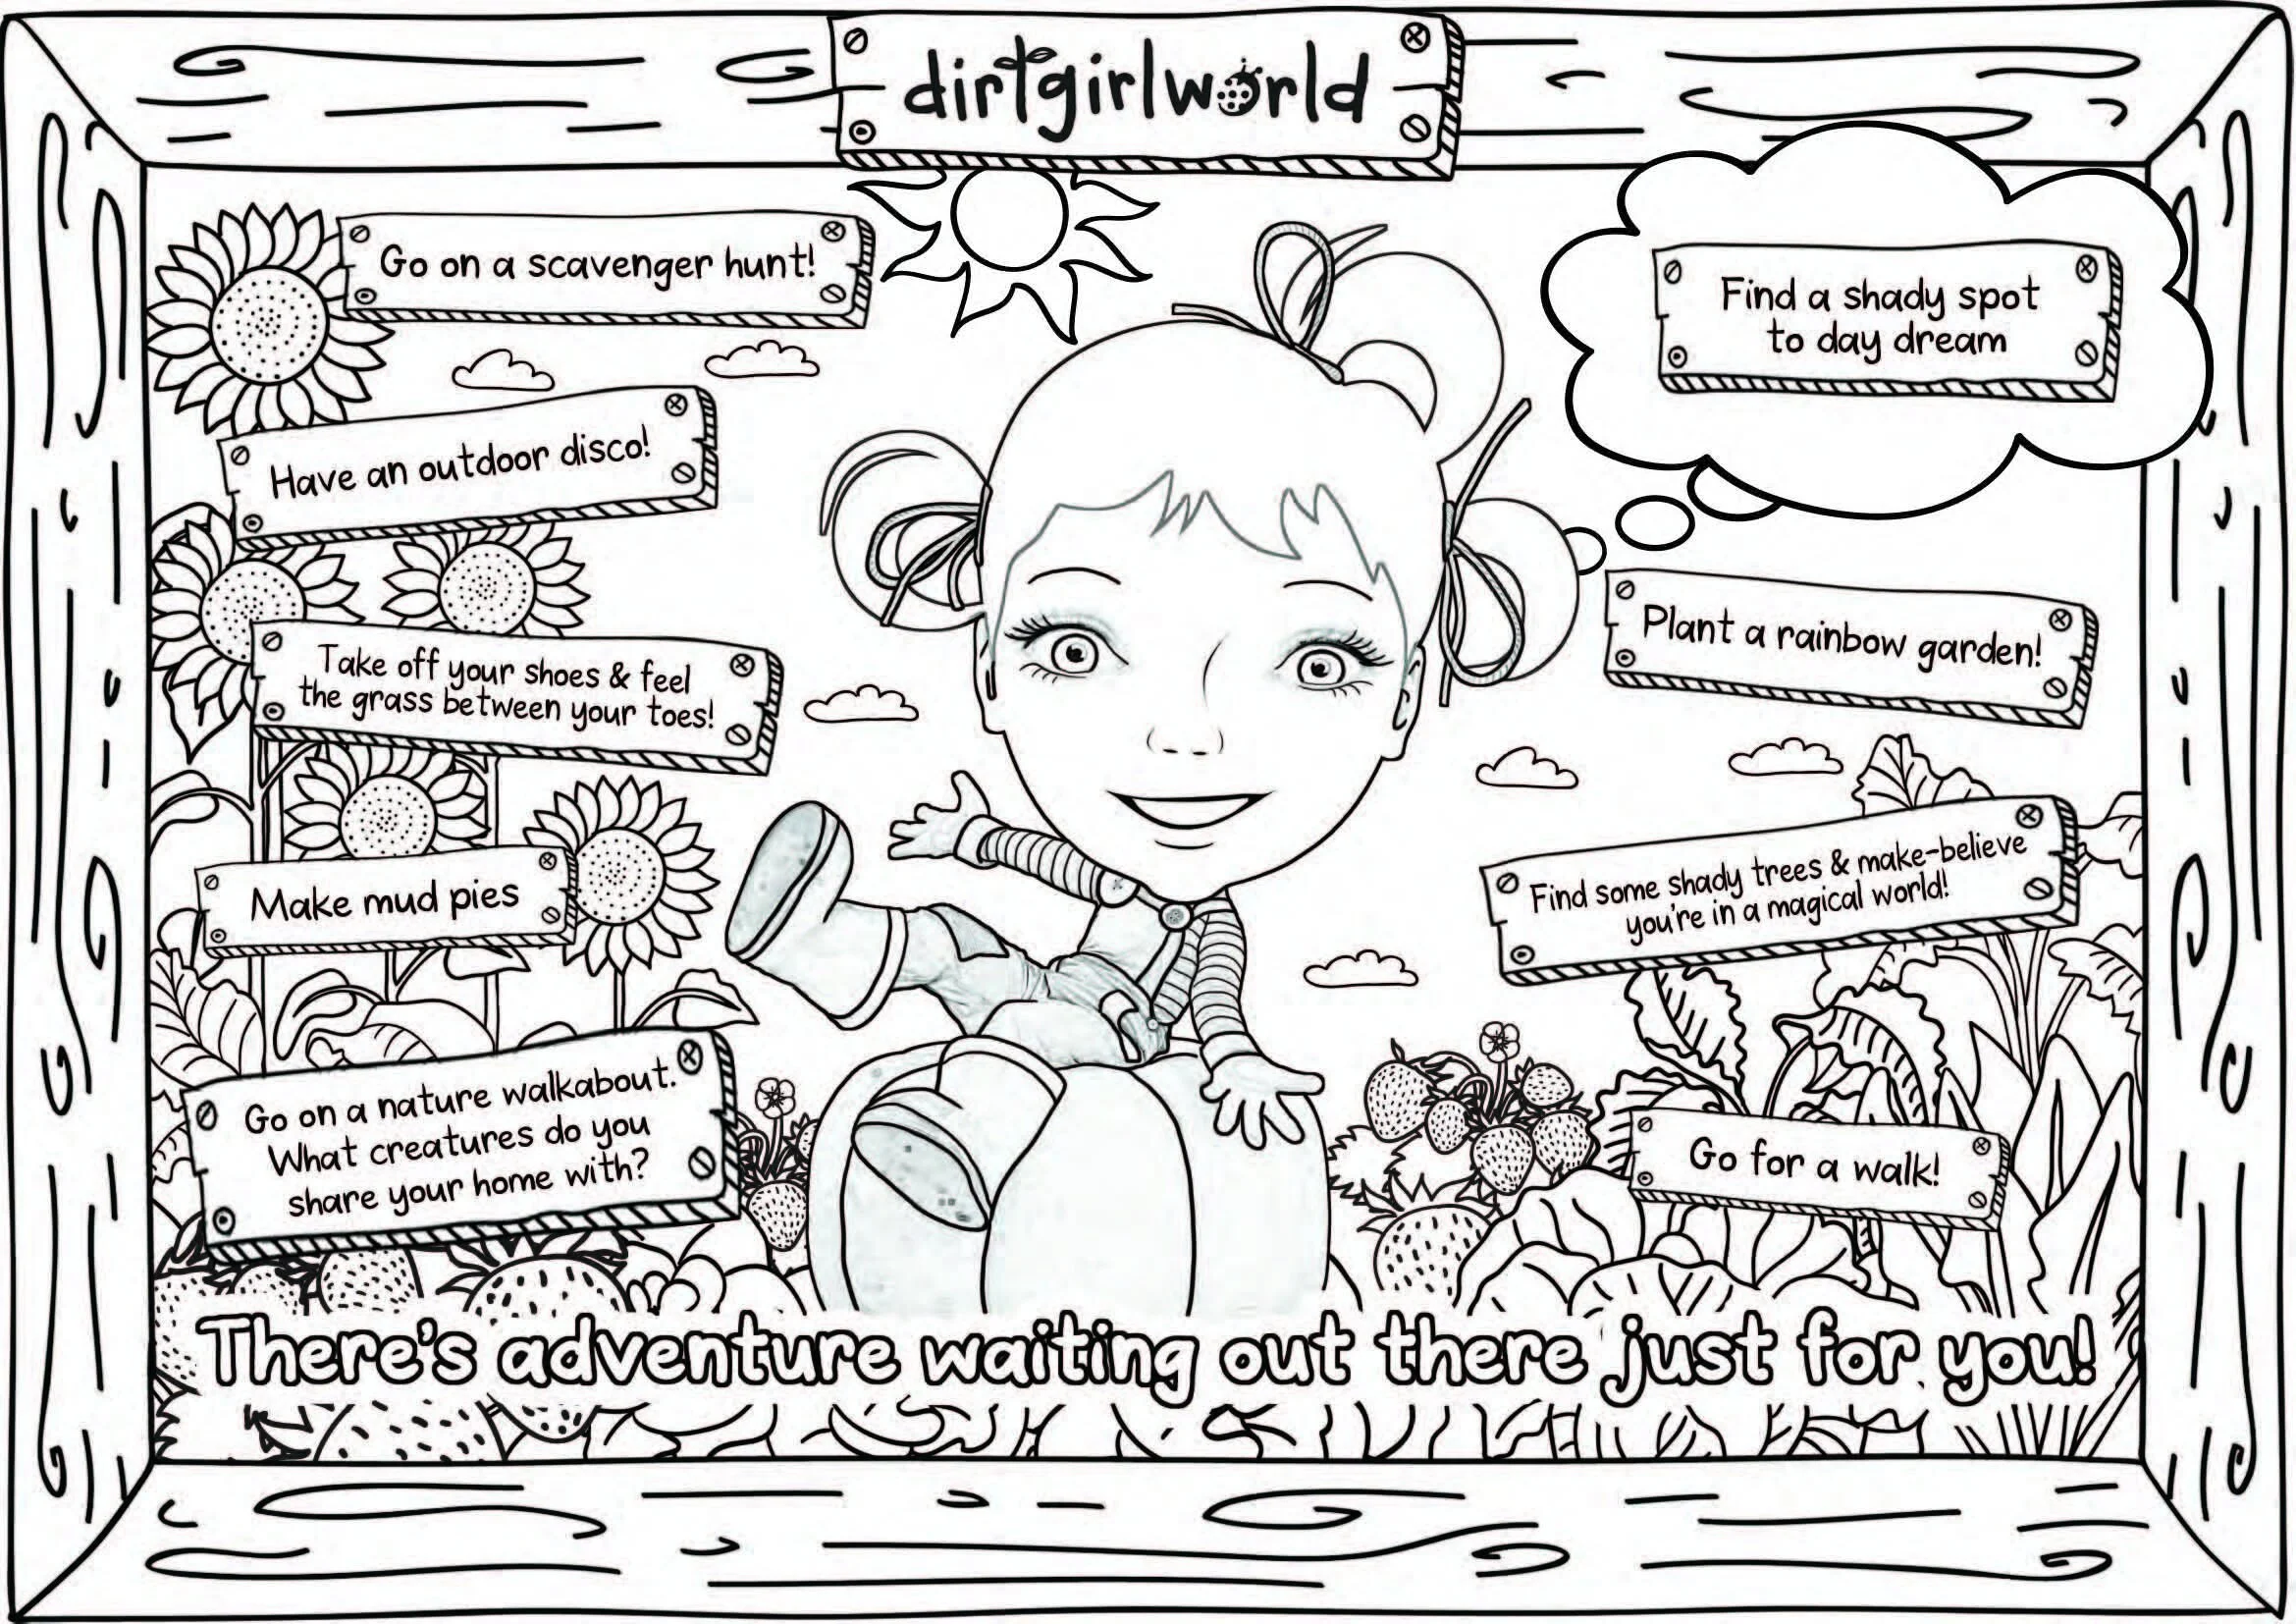 dirtgirlworld
Go on a scavenger hunt!
Have an outdoor disco!
Take off your shoes & feel
the grass between your toes!
Make mud pies
Go on a nature walkabout.
What creatures do you
share your home with?
Find a shady spot
to day dream
Plant a rainbow garden!
Find some shady trees & make-believe
you're in a magical world!
Go for a walk!
There's adventure waiting out there just for you!